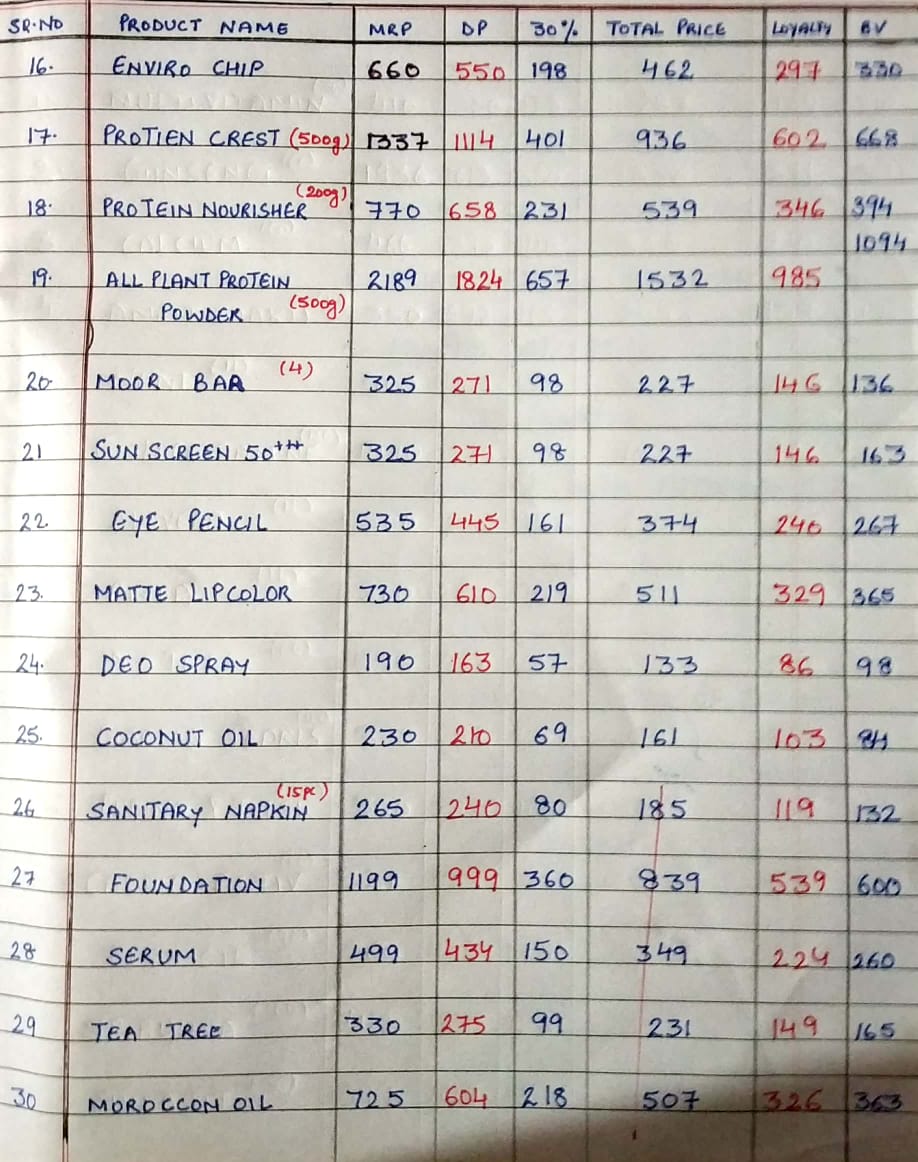 SR.NO PRODUCT NAME MRP DP 30% TOTAL PRICE LOYALTY BV
16. ENVIRO CHIP 660 550 198 462 297 330
17. PROTIEN CREST (500g) 1337 1114 401 936 602 668
18. PROTEIN NOURISHER (200g) 770 658 231 539 346 394
1094
19. ALL PLANT PROTEIN 2189 1824 657 1532 985
POWDER (500g)
20 MOOR BAR (4) 325 271 98 227 146 136
21 SUN SCREEN 50+++ 325 271 98 227 146 163
22 EYE PENCIL 535 445 161 374 240 267
23. MATTE LIPCOLOR 730 610 219 511 329 365
24. DEO SPRAY 190 163 57 133 86 98
25. COCONUT OIL 230 210 69 161 103
26 SANITARY NAPKIN (15pc) 265 240 80 185 119 132
27 FOUNDATION 1199 999 360 839 539 600
28 SERUM 499 434 150 349 224 260
29 TEA TREE 330 275 99 231 149 165
30 MOROCCON OIL 725 604 218 507 326 363